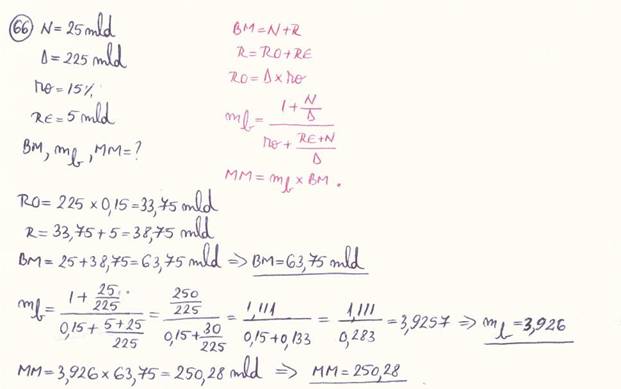 66 N = 25 mld
D = 225 mld
ro = 15%
RE = 5 mld
BM, mb, MM = ?
BM = N + R
R = RO + RE
RO = D × ro
mb = (1 + N/D) / (ro + (RE + N)/D)
MM = mb × BM.
RO = 225 × 0,15 = 33,75 mld
R = 33,75 + 5 = 38,75 mld
BM = 25 + 38,75 = 63,75 mld ⇒ BM = 63,75 mld
mb = (1 + 25/225) / (0,15 + (5 + 25)/225) = (250/225) / (0,15 + 30/225) = 1,111 / (0,15 + 0,133) = 1,111 / 0,283 = 3,9257 ⇒ mb = 3,926
MM = 3,926 × 63,75 = 250,28 mld ⇒ MM = 250,28